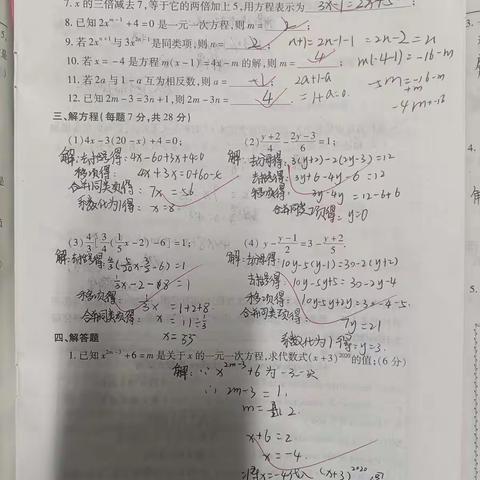 7. x的三倍减去7,等于它的两倍加上5,用方程表示为 3x-7=2x+5
8. 已知2xᵐ⁻¹+4=0是一元一次方程,则m= 2 ;
9. 若2xⁿ⁺¹与3x²ⁿ⁻¹是同类项,则n= 2 ; n+1=2n-1-1 =2n-2=n
10. 若x=-4是方程m(x-1)=4x-m的解,则m= 4 ; m(-4-1)=-16-m
11. 若2a与1-a互为相反数,则a= -1 ; 2a+1-a =1+a=0. -5m=-16-m +m
12. 已知2m-3=3n+1,则2m-3n= 4 . -4m=-16
三、解方程(每题7分,共28分)
(1)4x-3(20-x)+4=0;
解:去括号得: 4x-60+3x+4=0
移项得: 4x+3x=0+60-4
合并同类项得: 7x=56
系数化为1得: x=8
(2) (y+2)/4-(2y-3)/6=1;
解:去分母得: 3(y+2)-2(2y-3)=12
去括号得: 3y+6-4y-6=12
移项得: 3y-4y=12-6+6
合并同类项得: y=0
(3) 4/3[3/4(1/5x-2)-6]=1;
解:去括号得:
1/5x-2-8=1
移项得: 1/5x=1+2+8
合并同类项得: x=11÷1/5
x=55
(4) y-(y-1)/2=3-(y+2)/5;
解:去分母得: 10y-5(y-1)=30-2(y+2)
去括号得: 10y-5y+5=30-2y-4
移项得: 10y-5y+2y=30-4-5.
7y=21
系数化为1得:y=3.
四、解答题
1. 已知x²ᵐ⁻³+6=m是关于x的一元一次方程,求代数式(x+3)²⁰²⁰的值;(6分)
解:∵x²ᵐ⁻³+6为一元一次
∴2m-3=1,
m=2.
x+6=2
x=-4.
将x=-4代入(x+3)²⁰²⁰